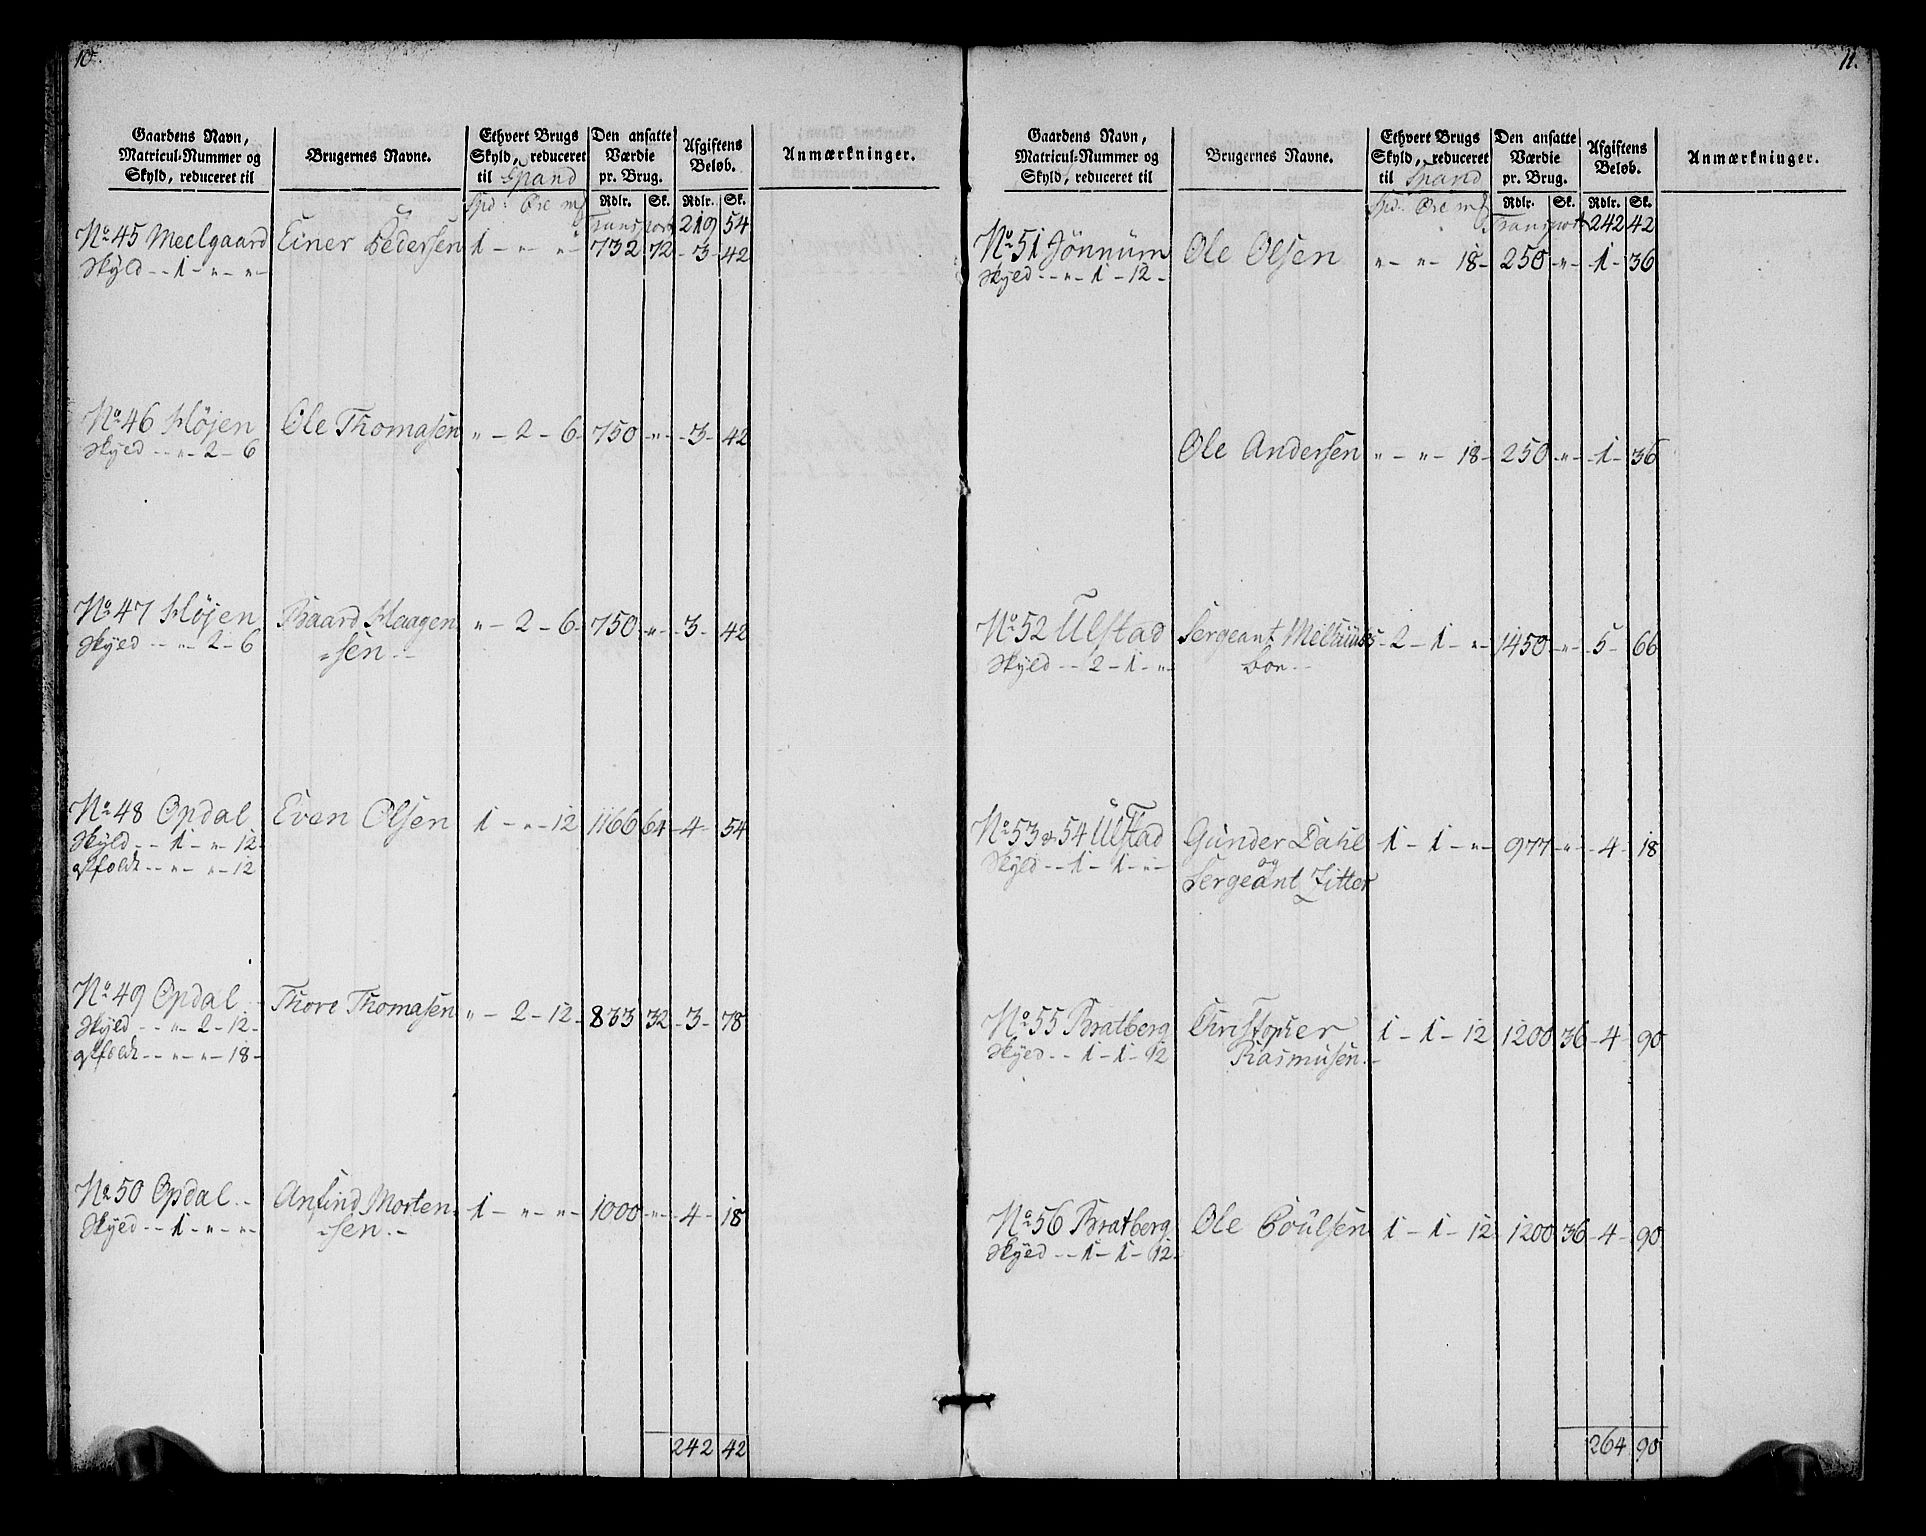 10.
Gaardens Navn, Matricul-Nummer og Skyld, reduceret til
Brugernes Navne.
Ethvert Brugs Skyld, reduceret til Spand
Den ansatte Værdie pr. Brug.
Afgiftens Beløb.
Anmærkninger.
Spd. Øre mf
Rdlr. Sk. Rdlr. Sk.
Transport 219 54
No 45 Meelgaard Einer Pedersen 1 - „ - „ 732 72 - 3 - 42
Skyld - - 1 - „ - „ -
No 46 Høyen Ole Thomasen „ - 2 - 6 - 750 - „ - 3 - 42
Skyld - - „ - 2 - 6
No 47 Høyen Baard Haagen „ - 2 - 6 - 750 - „ - 3 - 42
Skyld - - „ - 2 - 6 sen - -
No 48 Opdal Even Olsen 1 - „ - 12 1166 64 - 4 - 54
Skyld - - 1 - „ - 12
- - „ - „ - 12
No 49 Opdal Thore Thomasen „ - 2 - 12 - 833 32 - 3 - 78
Skyld - - „ - 2 - 12 -
- - „ - „ - 18 -
No 50 Opdal - Anfind Morten 1 - „ - „ - 1000 - „ - 4 - 18
Skyld - - 1 - „ - „ - sen - -
242 42
11.
Gaardens Navn, Matricul-Nummer og Skyld, reduceret til
Brugernes Navne.
Ethvert Brugs Skyld, reduceret til Spand
Den ansatte Værdie pr. Brug.
Afgiftens Beløb.
Anmærkninger.
Spd. Øre mf
Rdlr. Sk. Rdlr. Sk.
Transport 242 42
No 51 Jönnüm Ole Olsen „ - „ - 18 - 250 - „ - 1 - 36
Skyld - - „ - 1 - 12 -
Ole Andersen „ - „ - 18 - 250 - „ - 1 - 36
No 52 Ulstad Sergeant Melhuus 2 - 1 - „ - 1450 - „ - 5 - 66
Skyld - - 2 - 1 - „ - boe - -
No 53 & 54 Ulstad Gunder Dahl 1 - 1 - „ - 977 - „ - 4 - 18
Skyld - - 1 - 1 - „ - og
Sergeant Zitter
No 55 Bratberg Christopher 1 - 1 - 12 1200 36 - 4 - 90
Skyld - - 1 - 1 - 12 Rasmusen -
No 56 Bratberg Ole Poulsen 1 - 1 - 12 1200 36 - 4 - 90
Skyld - - 1 - 1 - 12 -
264 90